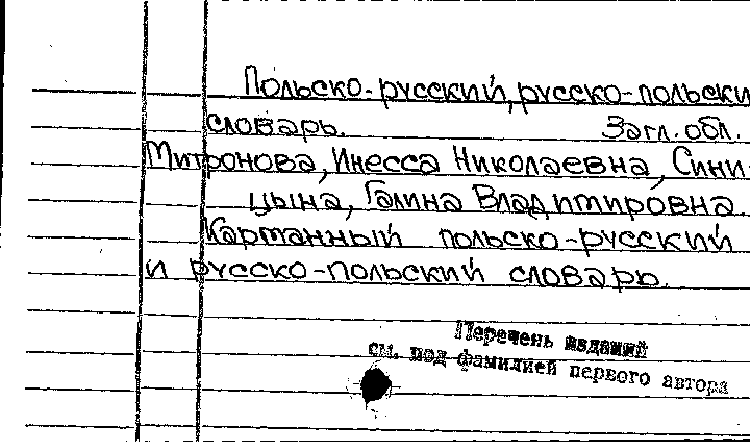 Польско-русский, русско-польски
словарь. Загл. обл.
Митронова, Инесса Николаевна, Сини-
цына, Галина Владимировна.
Карманный польско-русский
и русско-польский словарь.
Перечень изданий
см. под фамилией первого автора